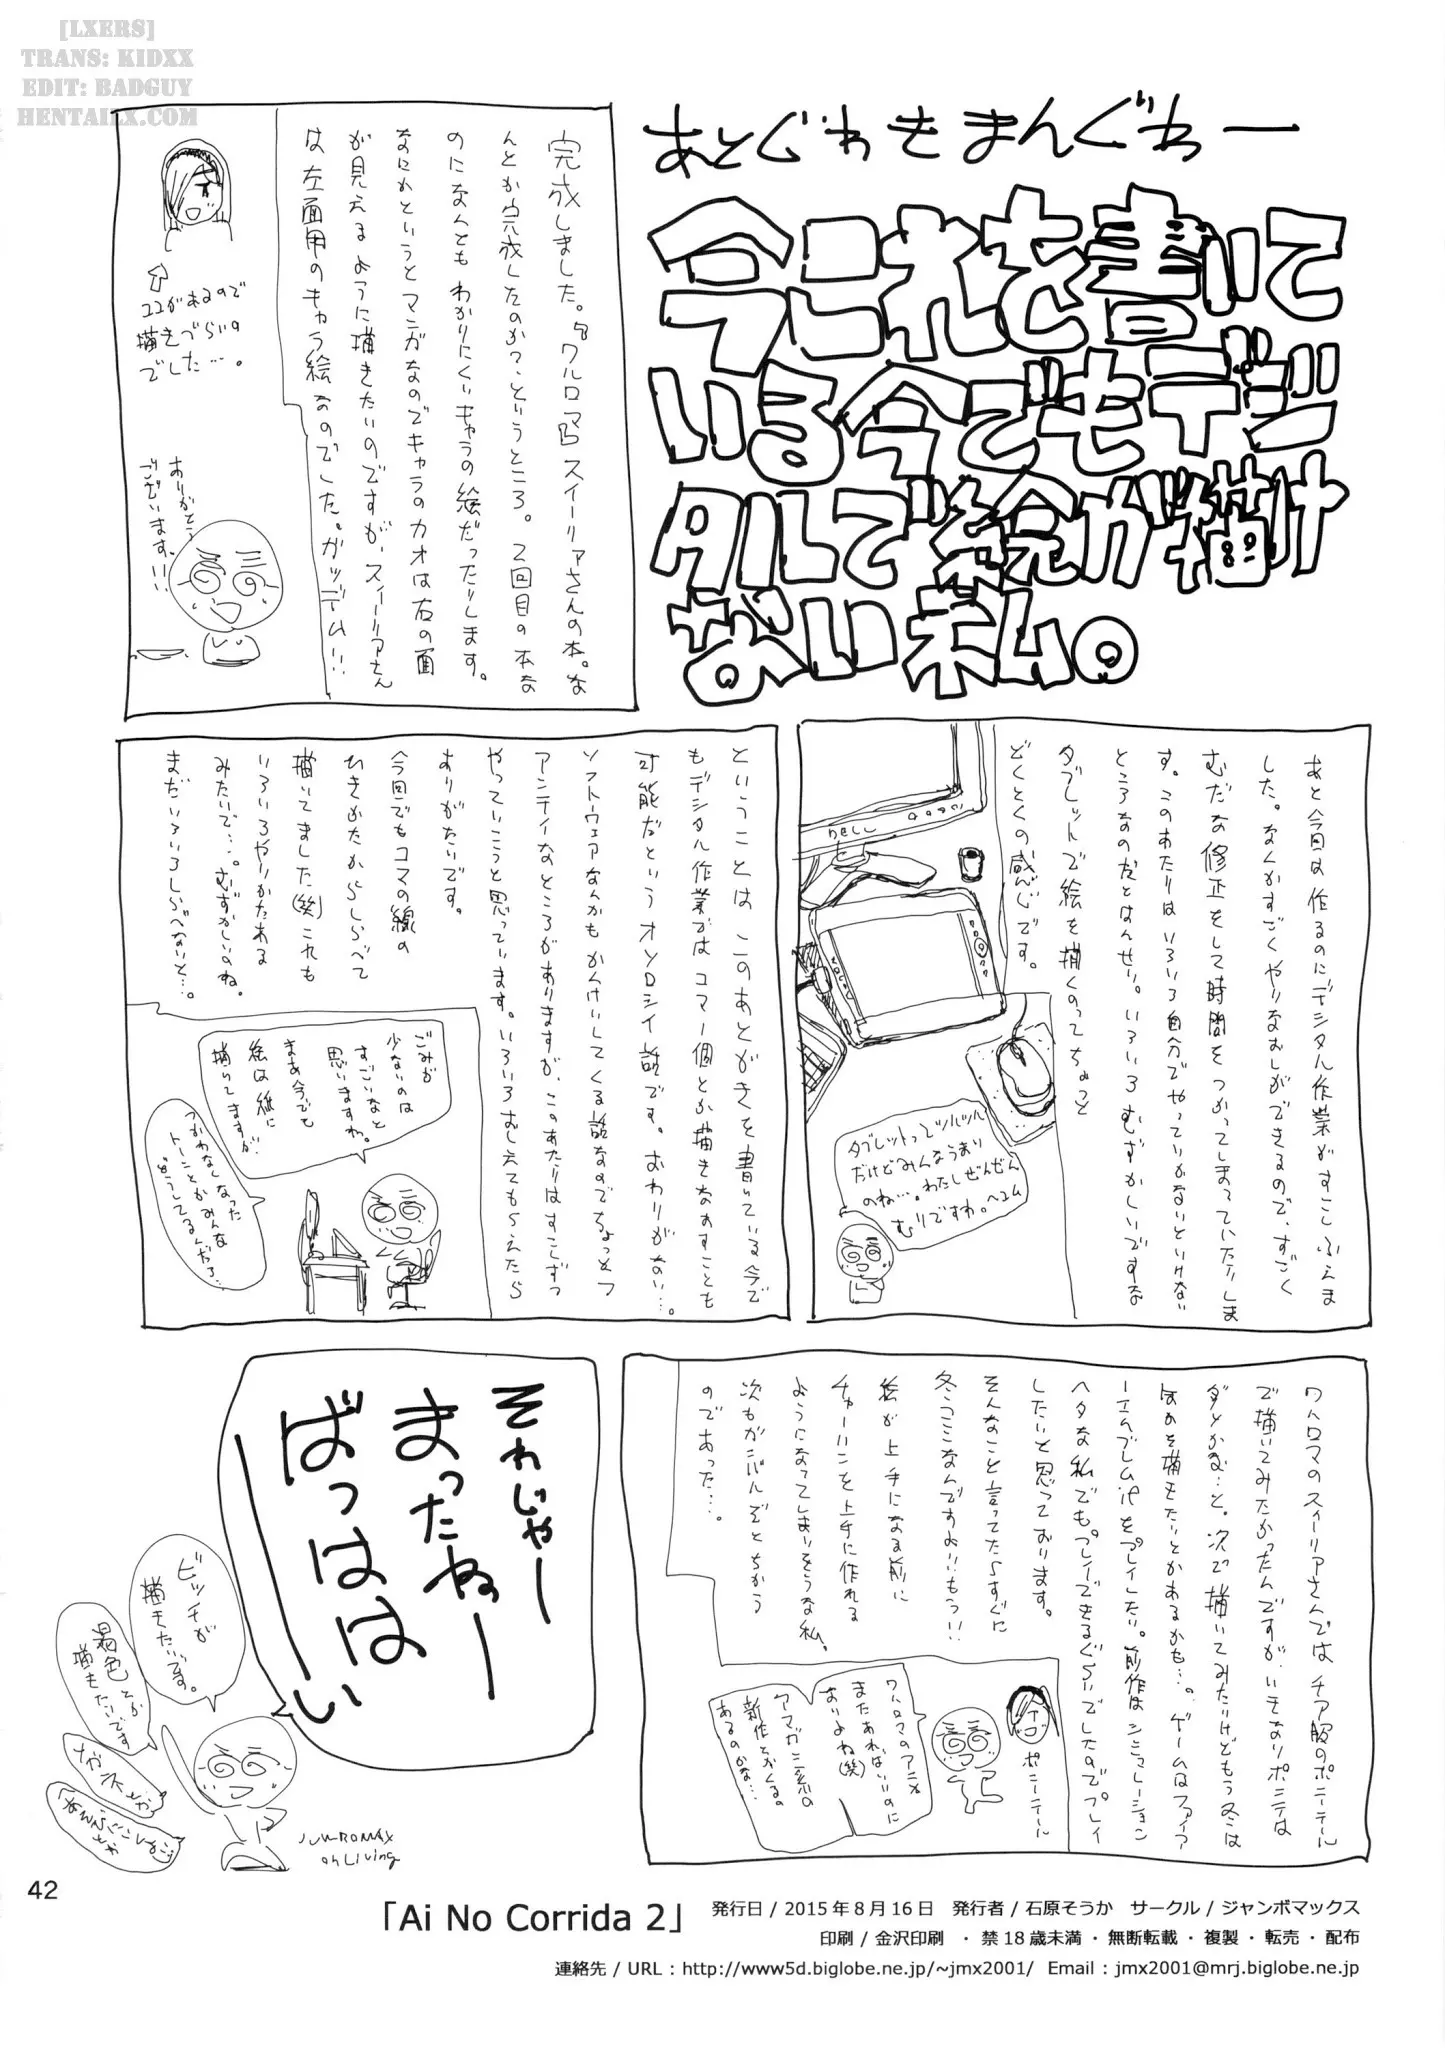 [LXERS]
TRANS: KIDXX
EDIT: BADGUY
HENTAILX.COM
あとぐわきまんぐわー
今これを書いて
いる今でもデジ
タルで絵が描け
ない私。
完成しました。『ワルロマ』スィーリアさんの本。な
んとか完成したのか?というところ。2回目の本な
のになんともわかりにくいキャラの絵だったりします。
なにかというとマンガなのでキャラのカオは右の面
が見えるように描きたいのですが、スィーリアさん
は左面用のキャラ絵なのでした。ガッデーム!!
ココがあるので
描きづらいの
でした…。
ありがとう
ございます!!
あと今回は作るのにデジタル作業がすこしふえま
した。なんかすごくやりなおしができるので、すごく
むだな修正をして時間をつかってしまっていたりしま
す。このあたりはいろいろ自分でやっていかないといけない
ところなのだとはんせい。いろいろむずかしいですな
タブレットで絵を描くのってちょっと
どくとくの感じです。
DELL
タブレットってツルツル
だけどみんなうまい
のね…。わたしぜんぜん
むりですわ。ヘコム
ということはこのあとがきを書いている今で
もデジタル作業ではコマ1個とか描きなおすことも
可能だというオソロシイ話です。おわりがない…。
ソフトウェアなんかもかんけいしてくる話なのでちょっとフ
アンティなところがありますが、このあたりはすこしずつ
やっていこうと思っています。いろいろおしえてもらえたら
ありがたいです。
今回でもコマの線の
ひきかたからしらべて
描いてました(笑)これも
いろいろやりかたある
みたいで…。むずかしいのね。
まだいろいろしらべないと…。
ごみが
少ないのは
すごいなと
思いますわ。
まあ今でも
絵は紙に
描いてますが…
つかわなくなった
トーンとかみんな
どうしてるんだろ…
ワルロマのスィーリアさんではチア服のポニーテール
で描いてみたかったんですが、いきなりポニテは
ダメかな…と。次で描いてみたいけどもう冬は
べつのを描きたいとかあるかも…。ゲームはファイア
ーエムブレムifをプレイしたい。前作はシミュレーション
ヘタな私でもプレイできるぐらいでしたのでプレイ
したいと思っております。
そんなこと言ってたらすぐに
冬コミなんですよ!!もうっ!!
絵が上手になる前に
チャーハンを上手に作れる
ようになってしまいそうな私。
次もガンバルぞとちかう
のであった…。
ポニーテール
ワルロマのアニメ
またあればいいのに
おりよね(笑)
アマガミ系の
新作とかくるの
あるのかな…
それじゃー
まったねー
ばっはは
ーーい
ビッチが
描きたいです。
褐色とか
描きたいです
メガネとか
JUMBOMAX
on Living
42
「Ai No Corrida 2」
発行日 / 2015年8月16日 発行者 / 石原そうか サークル / ジャンボマックス
印刷 / 金沢印刷 ・禁18歳未満・無断転載・複製・転売・配布
連絡先 / URL : http://www5d.biglobe.ne.jp/~jmx2001/ Email : jmx2001@mrj.biglobe.ne.jp